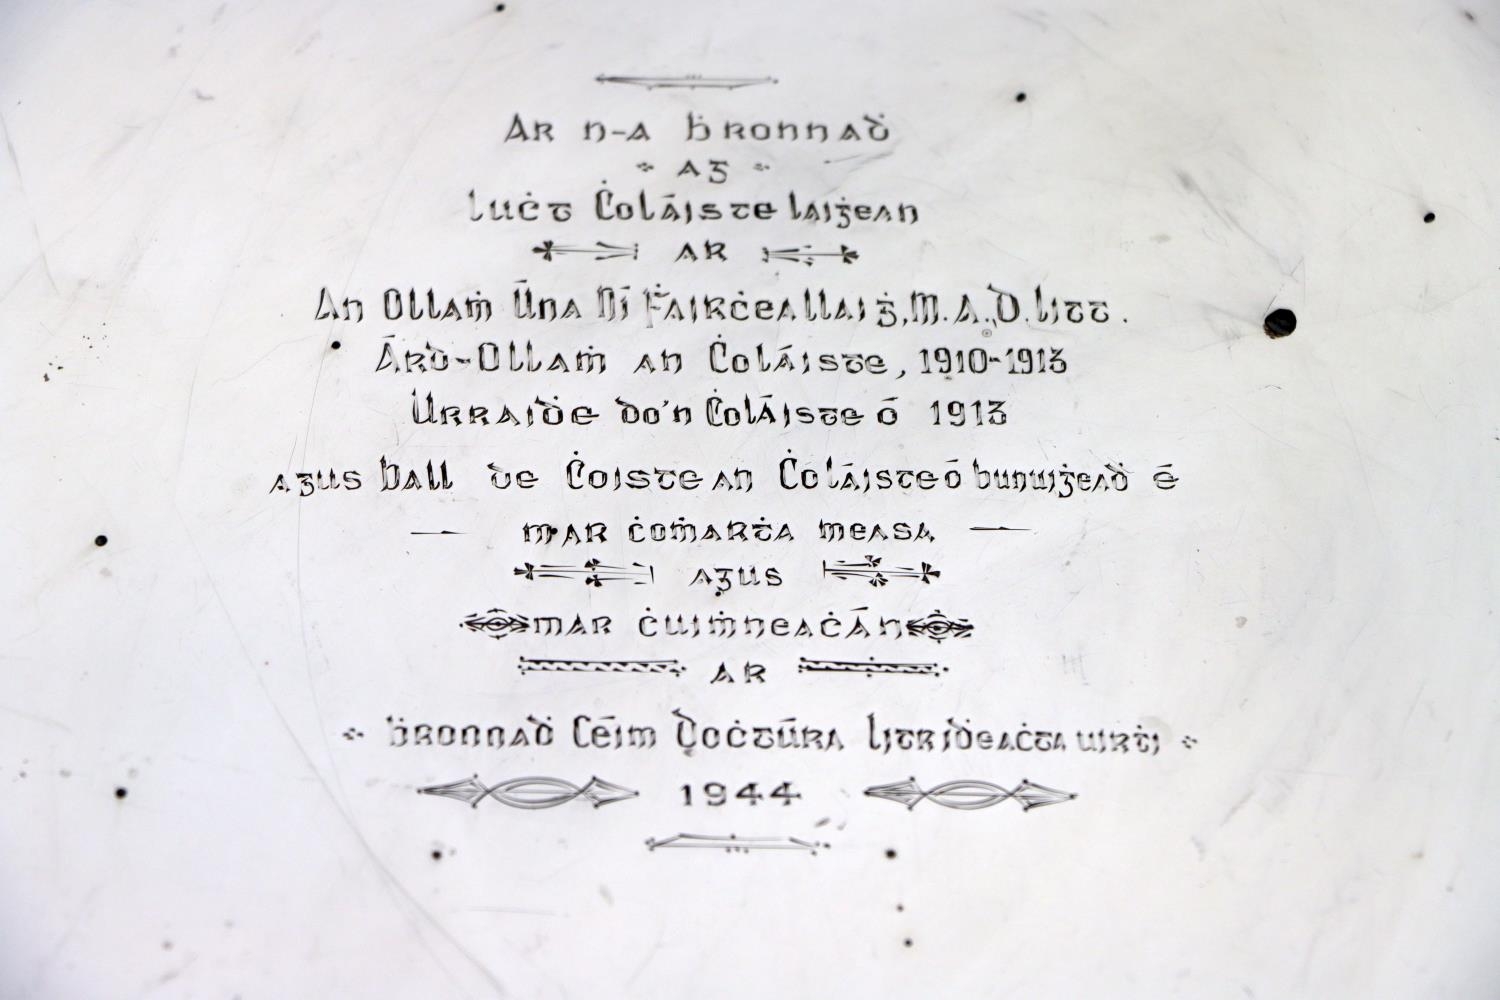 Ar n-a ḃronnaḋ
ag
luċt Ċoláiste laiġean
ar
An Ollaṁ Úna Ní Ḟairċeallaiġ, M.A., D.litt.
Árd-Ollaṁ an Ċoláiste, 1910-1913
Urraiḋe do'n Ċoláiste ó 1913
agus ball de Ċoiste an Ċoláiste ó bunuiġeaḋ é
mar ċoṁarṫa measa
agus
mar ċuiṁneaċán
ar
ḃronnaḋ Céim Doċtúra litriḋeaċta uirṫi
1944